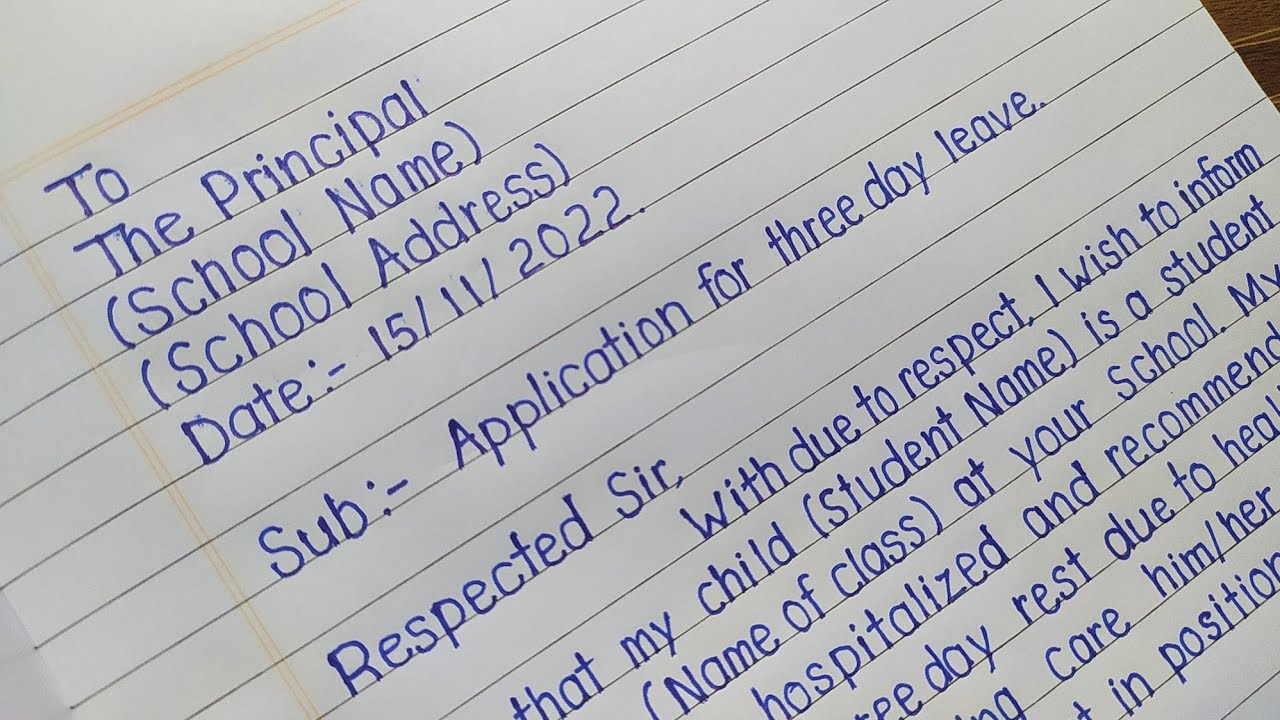 To
The Principal
(School Name)
(School Address)
Date:- 15/11/2022.
Sub:- Application for three day leave.
Respected Sir,
With due to respect, I wish to inform
that my child (Student Name) is a student
(Name of class) at your school. My
hospitalized and recommend
day rest due to
care him/her
in position